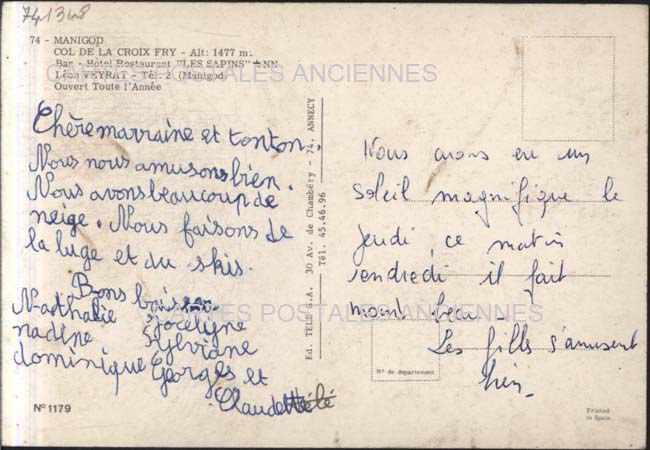 741348
74 - MANIGOD
COL DE LA CROIX FRY - Alt: 1477 m.
Bar - Hôtel Restaurant "LES SAPINS" ★NN
Léon VEYRAT - Tél. 2 (Manigod)
Ouvert Toute l'Année
CARTES POSTALES ANCIENNES
Chère marraine et tonton,
Nous nous amusons bien.
Nous avons beaucoup de
neige. Nous faisons de
la luge et du skis.
Bons baisers
Nathalie Jocelyne
nadine Sylviane
dominique Georges et
Claudette
Nº 1179
Ed. TELE S.A. 30 Av. de Chambéry - 74. ANNECY
Tél. 45.46.96
Nous avons eu un
soleil magnifique le
jeudi, ce matin
vendredi il fait
moins beau.
Les filles s'amusent
bien.
CARTES POSTALES ANCIENNES
Nº de département
Printed
in Spain